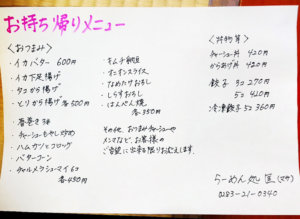 お持ち帰りメニュー
<おつまみ>
・イカバター 600円
・イカ下足揚げ
・タコから揚げ
・とりから揚げ 各500円
・春巻き 3本
・チャーシューもやし炒め
・ハムカツとコロッケ
・バターコーン
・チャルメラシューマイ 6コ
各450円
・キムチ納豆
・オニオンスライス
・なめたけおろし
・しらすおろし
・はんぺん焼
各350円
その他、おつまみチャーシューや
メンマなど、お客様の
ご要望に出来る限りお応えします。
<丼物等>
チャーシュー丼 420円
からあげ丼 420円
餃子 3コ 270円
5コ 420円
冷凍餃子 5コ 360円
らーめん処 匠(マサ)
0283-21-0340